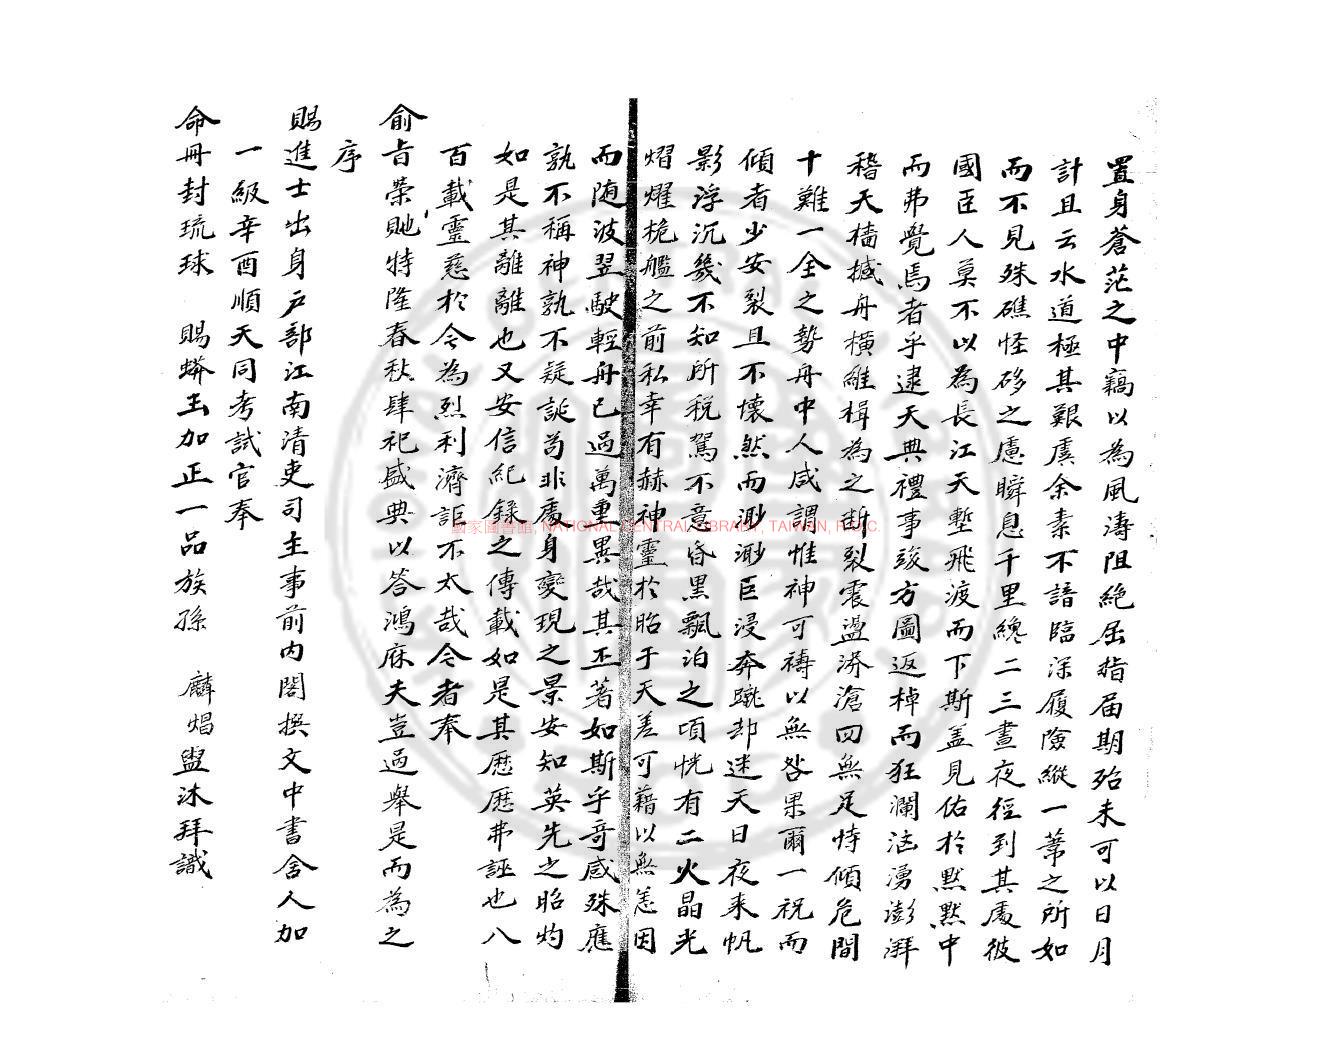 置身蒼茫之中竊以為風濤阻絶屈指届期殆未可以日月
計且云水道極其艱虞余素不諳臨深履險縱一葦之所如
而不見殊礁怪砂之慮瞬息千里纔二三晝夜徑到其處彼
國臣人莫不以為長江天塹飛渡而下斯盖見佑於默默中
而弗覺焉者乎逮天典禮事竣方圖返棹而狂瀾洶湧澎湃
稽天檣撼舟橫維楫為之斷裂震盪漭滄四無足恃傾危間
十難一全之勢舟中人咸謂惟神可禱以無咎果爾一祝而
傾者少安裂且不懷然而渺渺巨浸奔蹴却迷天日夜来帆
影浮沉幾不知所稅駕不意昏黑飄泊之頃恍有二火晶光
熠燿桅艦之前私幸有赫神靈於昭于天差可藉以無恙因
而随波翌駛輕舟已過萬重異哉其丕著如斯乎奇感殊應
孰不稱神孰不疑誕苟非處身變現之景安知英先之昭灼
如是其離離也又安信紀錄之傳載如是其歷歷弗誣也八
百載靈慈於今為烈利濟詎不太哉今者奉
俞旨榮貤特隆春秋肆祀盛典以答鴻庥夫豈過舉是而為之
序
賜進士出身户部江南清吏司主事前内閣撰文中書舍人加
一級辛酉順天同考試官奉
命冊封琉球 賜蟒玉加正一品族孫 麟焻盥沐拜識
國家圖書館, NATIONAL CENTRAL LIBRARY, TAIWAN, R.O.C.